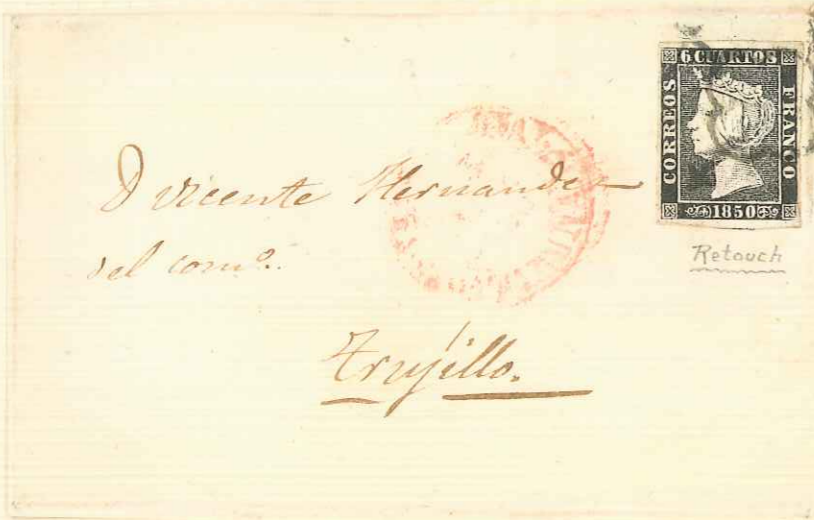 6 CUARTOS
CORREOS
FRANCO
1850
Retouch
D Vicente Hernandez
del como.
Trujillo.